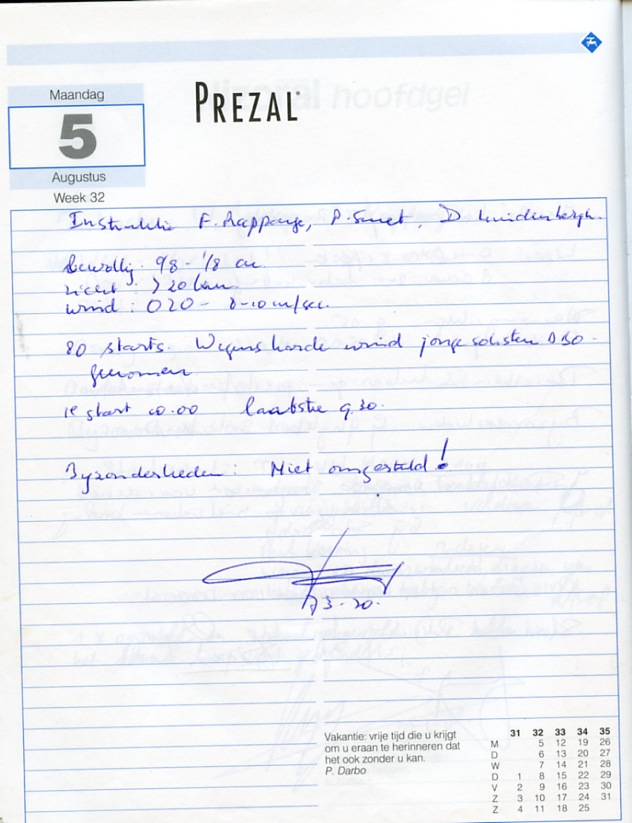 PREZAL
Maandag
5
Augustus
Week 32
Instruktie F. Rappange, P. Smet, D
Bewolkg. 98 - 1/8 cu.
zicht : > 20 km.
wind : 020 - 8-10 m/sec.
80 starts. Wegens harde wind jonge solisten DBO-
genomen
1e start 10.00 laatste 9.30.
Byzonderheden : Niet omgesteld!
Vakantie: vrije tijd die u krijgt
om u eraan te herinneren dat
het ook zonder u kan.
P. Darbo
31 32 33 34 35
M 5 12 19 26
D 6 13 20 27
W 7 14 21 28
D 1 8 15 22 29
V 2 9 16 23 30
Z 3 10 17 24 31
Z 4 11 18 25